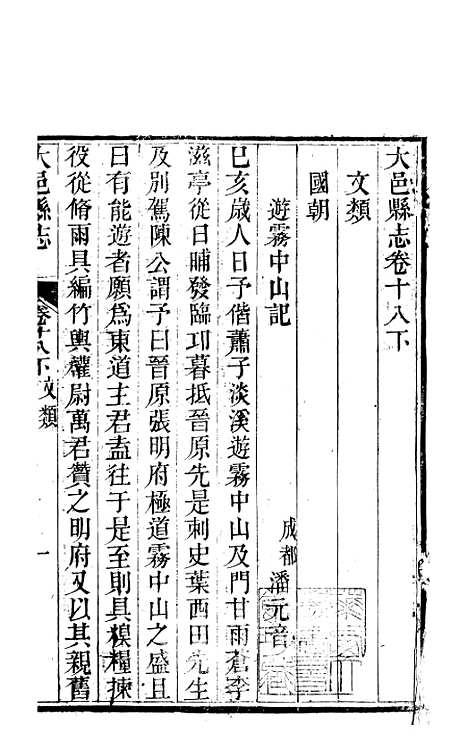 大邑縣志卷十八下
文類
國朝
遊霧中山記
成都 潘元音
巳亥歲人日予偕蕭子淡溪遊霧中山及門甘雨蒼李
滋亭從日晡發臨邛暮抵晉原先是刺史葉西田先生
及別駕陳公謂予曰晉原張明府極道霧中山之盛且
曰有能遊者願為東道主君盍往于是至則具糗糧揀
役從脩雨具編竹輿權尉萬君贊之明府又以其親舊
大邑縣志
卷十八下 文類
一